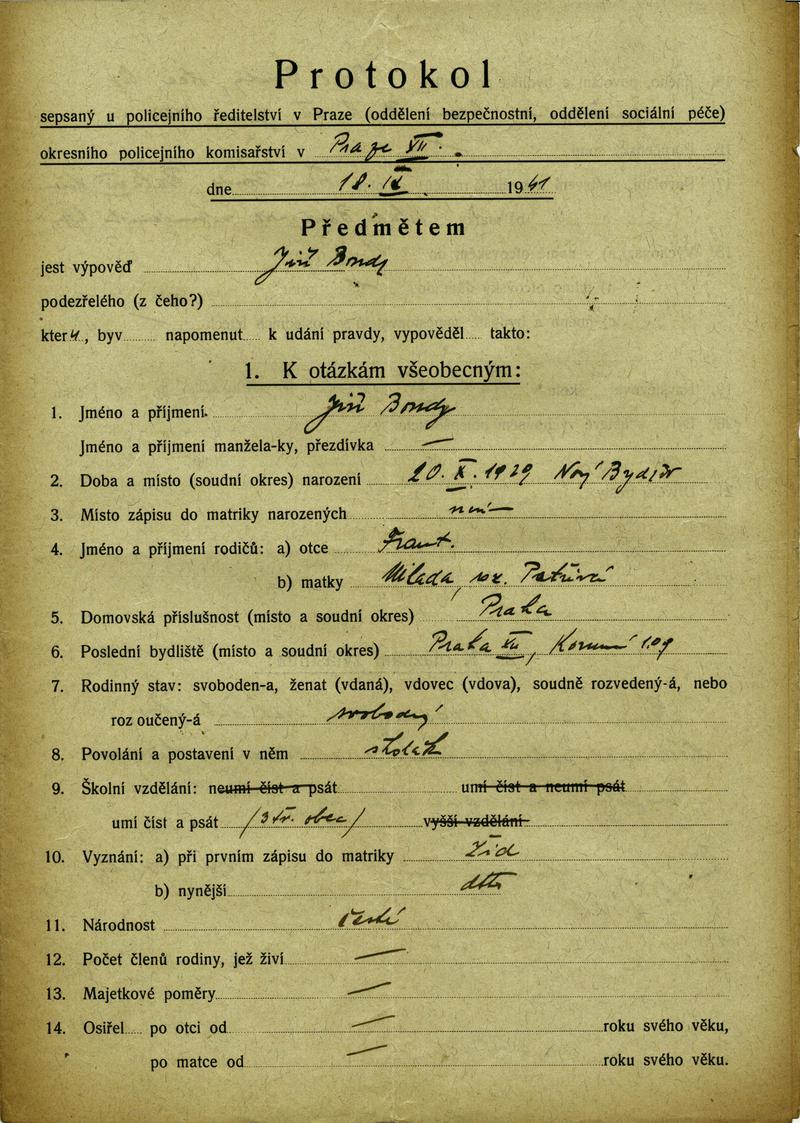 Protokol
sepsaný u policejního ředitelství v Praze (oddělení bezpečnostní, oddělení sociální péče)
okresního policejního komisařství v Praze VII.
dne 18. IX. 1941
Předmětem
jest výpověď Jiří Bondy
podezřelého (z čeho?)
který, byv napomenut k udání pravdy, vypověděl takto:
1. K otázkám všeobecným:
1. Jméno a příjmení Jiří Bondy
Jméno a příjmení manžela-ky, přezdívka —
2. Doba a místo (soudní okres) narození 20. X. 1929 Nový Bydžov
3. Místo zápisu do matriky narozených
4. Jméno a příjmení rodičů: a) otce Frant.
b) matky Milada, roz.
5. Domovská příslušnost (místo a soudní okres) Praha
6. Poslední bydliště (místo a soudní okres) Praha VII,
7. Rodinný stav: svoboden-a, ženat (vdaná), vdovec (vdova), soudně rozvedený-á, nebo
rozloučený-á svobodný
8. Povolání a postavení v něm
9. Školní vzdělání: neumí číst a psát umí číst a neumí psát
umí číst a psát /3 tř. obec/ vyšší vzdělání
10. Vyznání: a) při prvním zápisu do matriky žid.
b) nynější dtto
11. Národnost česká
12. Počet členů rodiny, jež živí —
13. Majetkové poměry —
14. Osiřel po otci od — roku svého věku,
po matce od — roku svého věku.